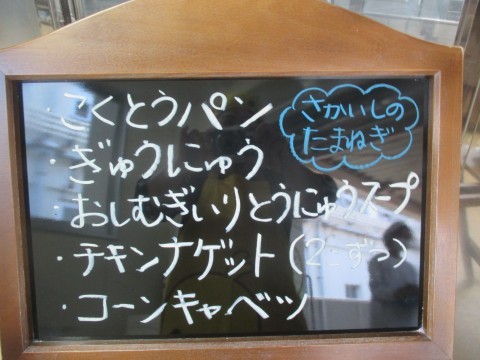 ・こくとうパン
さかいしの
たまねぎ
・ぎゅうにゅう
・おしむぎいりとうにゅうスープ
・チキンナゲット(2こずつ)
・コーンキャベツ